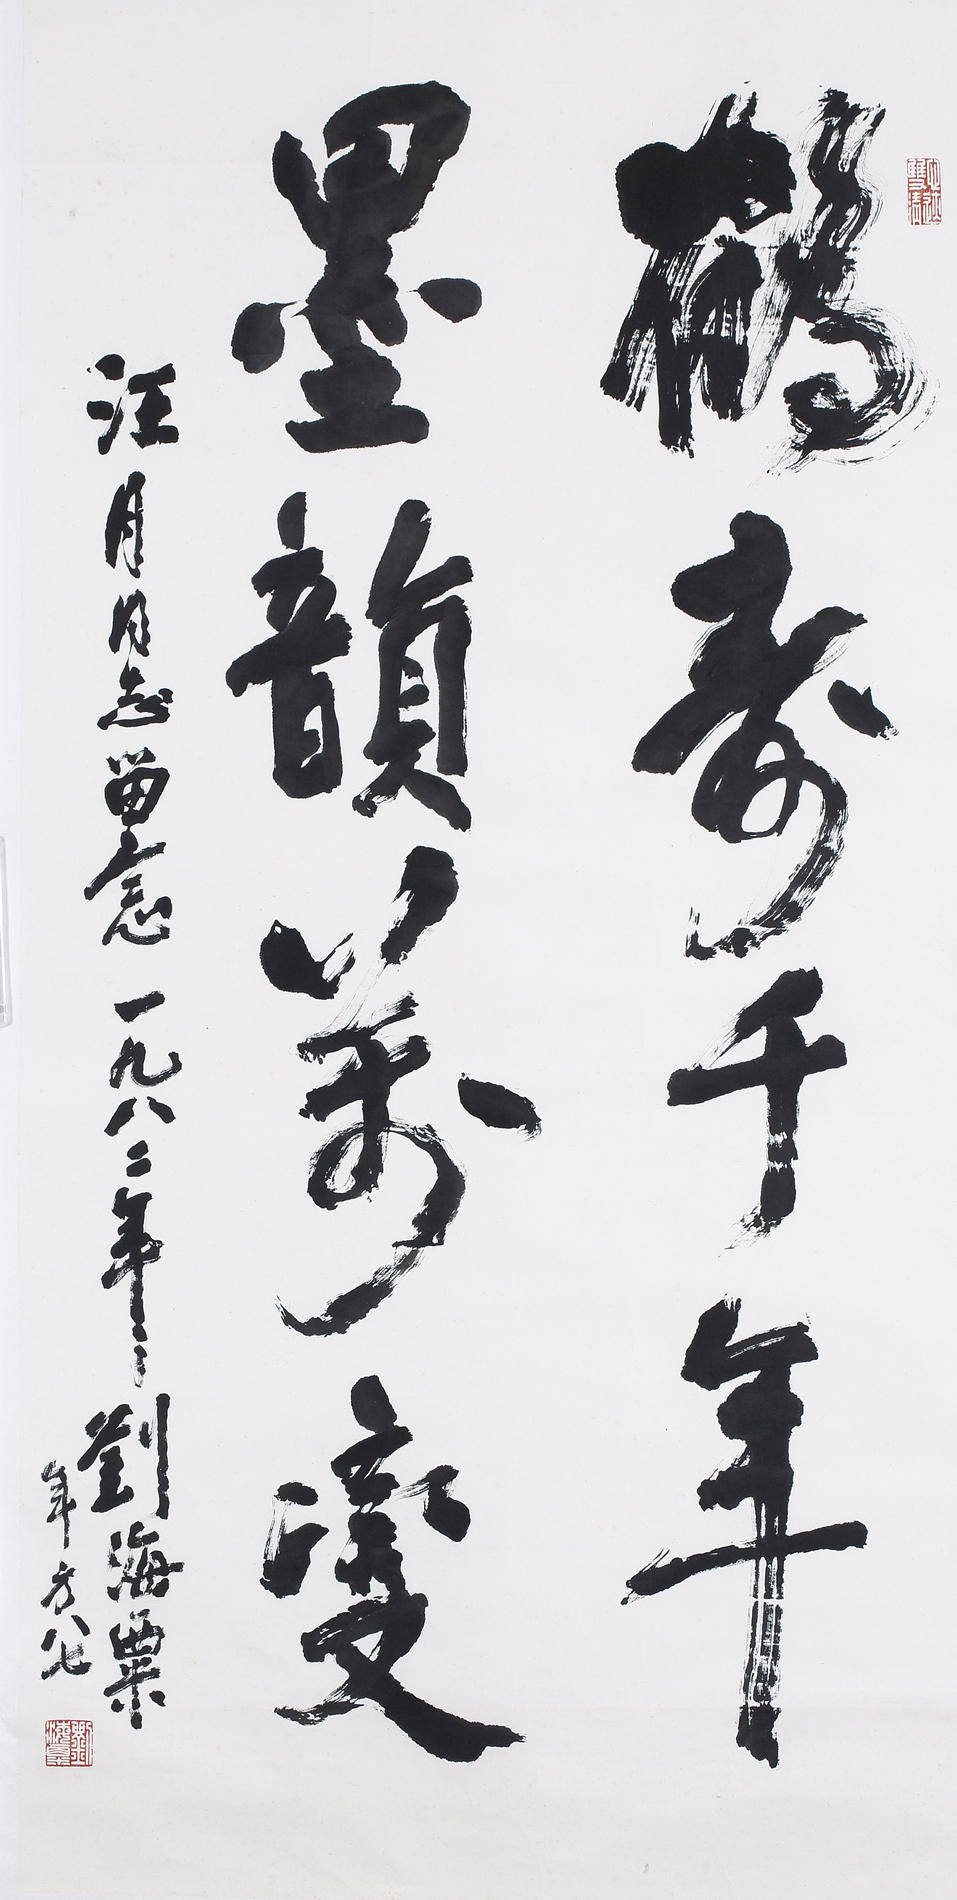 鶴壽千年
墨韻萬變
汪月同志留念 一九八二年 劉海粟
年方八七
劉海粟